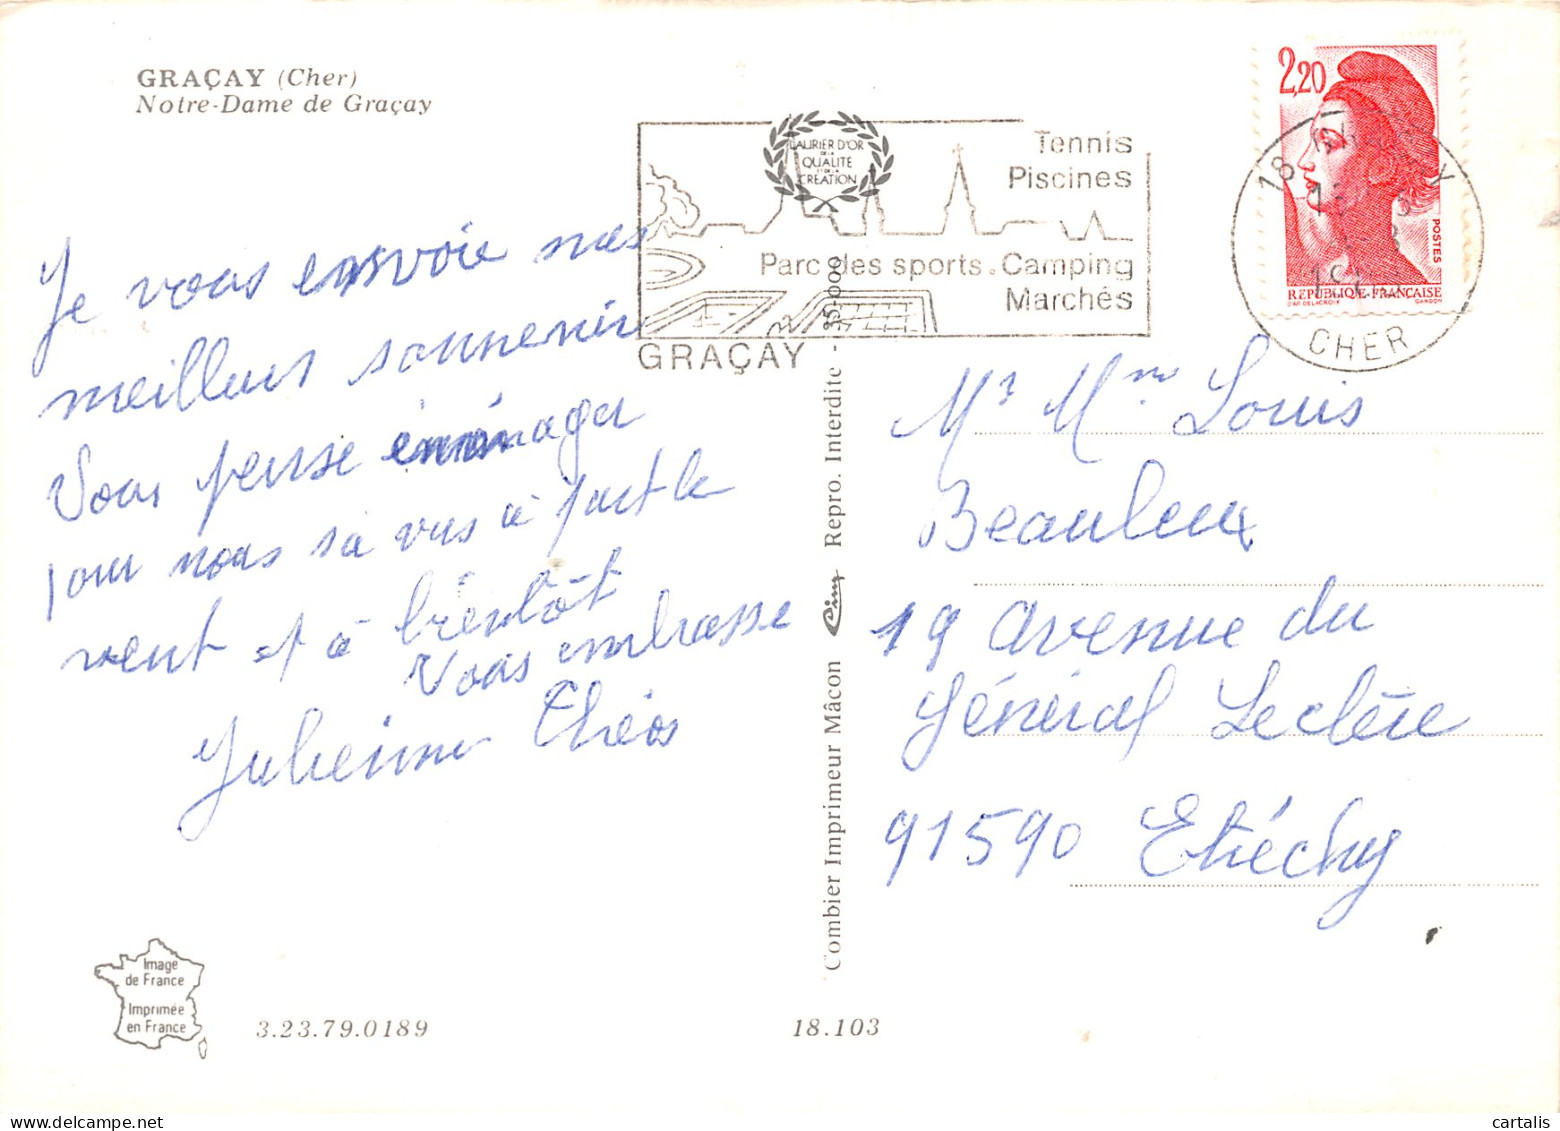 GRAÇAY (Cher)
Notre-Dame de Graçay
LAURIER D'OR
DE LA
QUALITE
ET DE LA
CREATION
Tennis
Piscines
Parc des sports. Camping
Marchés
GRAÇAY
2,20
POSTES
REPUBLIQUE FRANCAISE
D'AP. DELACROIX GANDON
18
CHER
Je vous envoie mes
meilleurs souvenirs
Vous pense
pour nous sa vas à part le
vent et à bientôt
Vous embrasse
Julienne Théos
Mr Mme Louis
Beauleux
19 avenue du
Général Leclère
91590 Etréchy
Combier Imprimeur Mâcon Cim Repro. Interdite - 35.000
Image
de France
Imprimée
en France
3.23.79.0189
18.103
cartalis